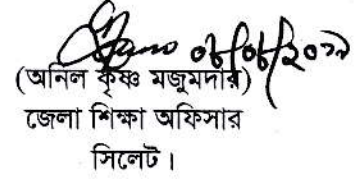 ০৮/০৮/২০১১
(অনিল কৃষ্ণ মজুমদার)
জেলা শিক্ষা অফিসার
সিলেট।